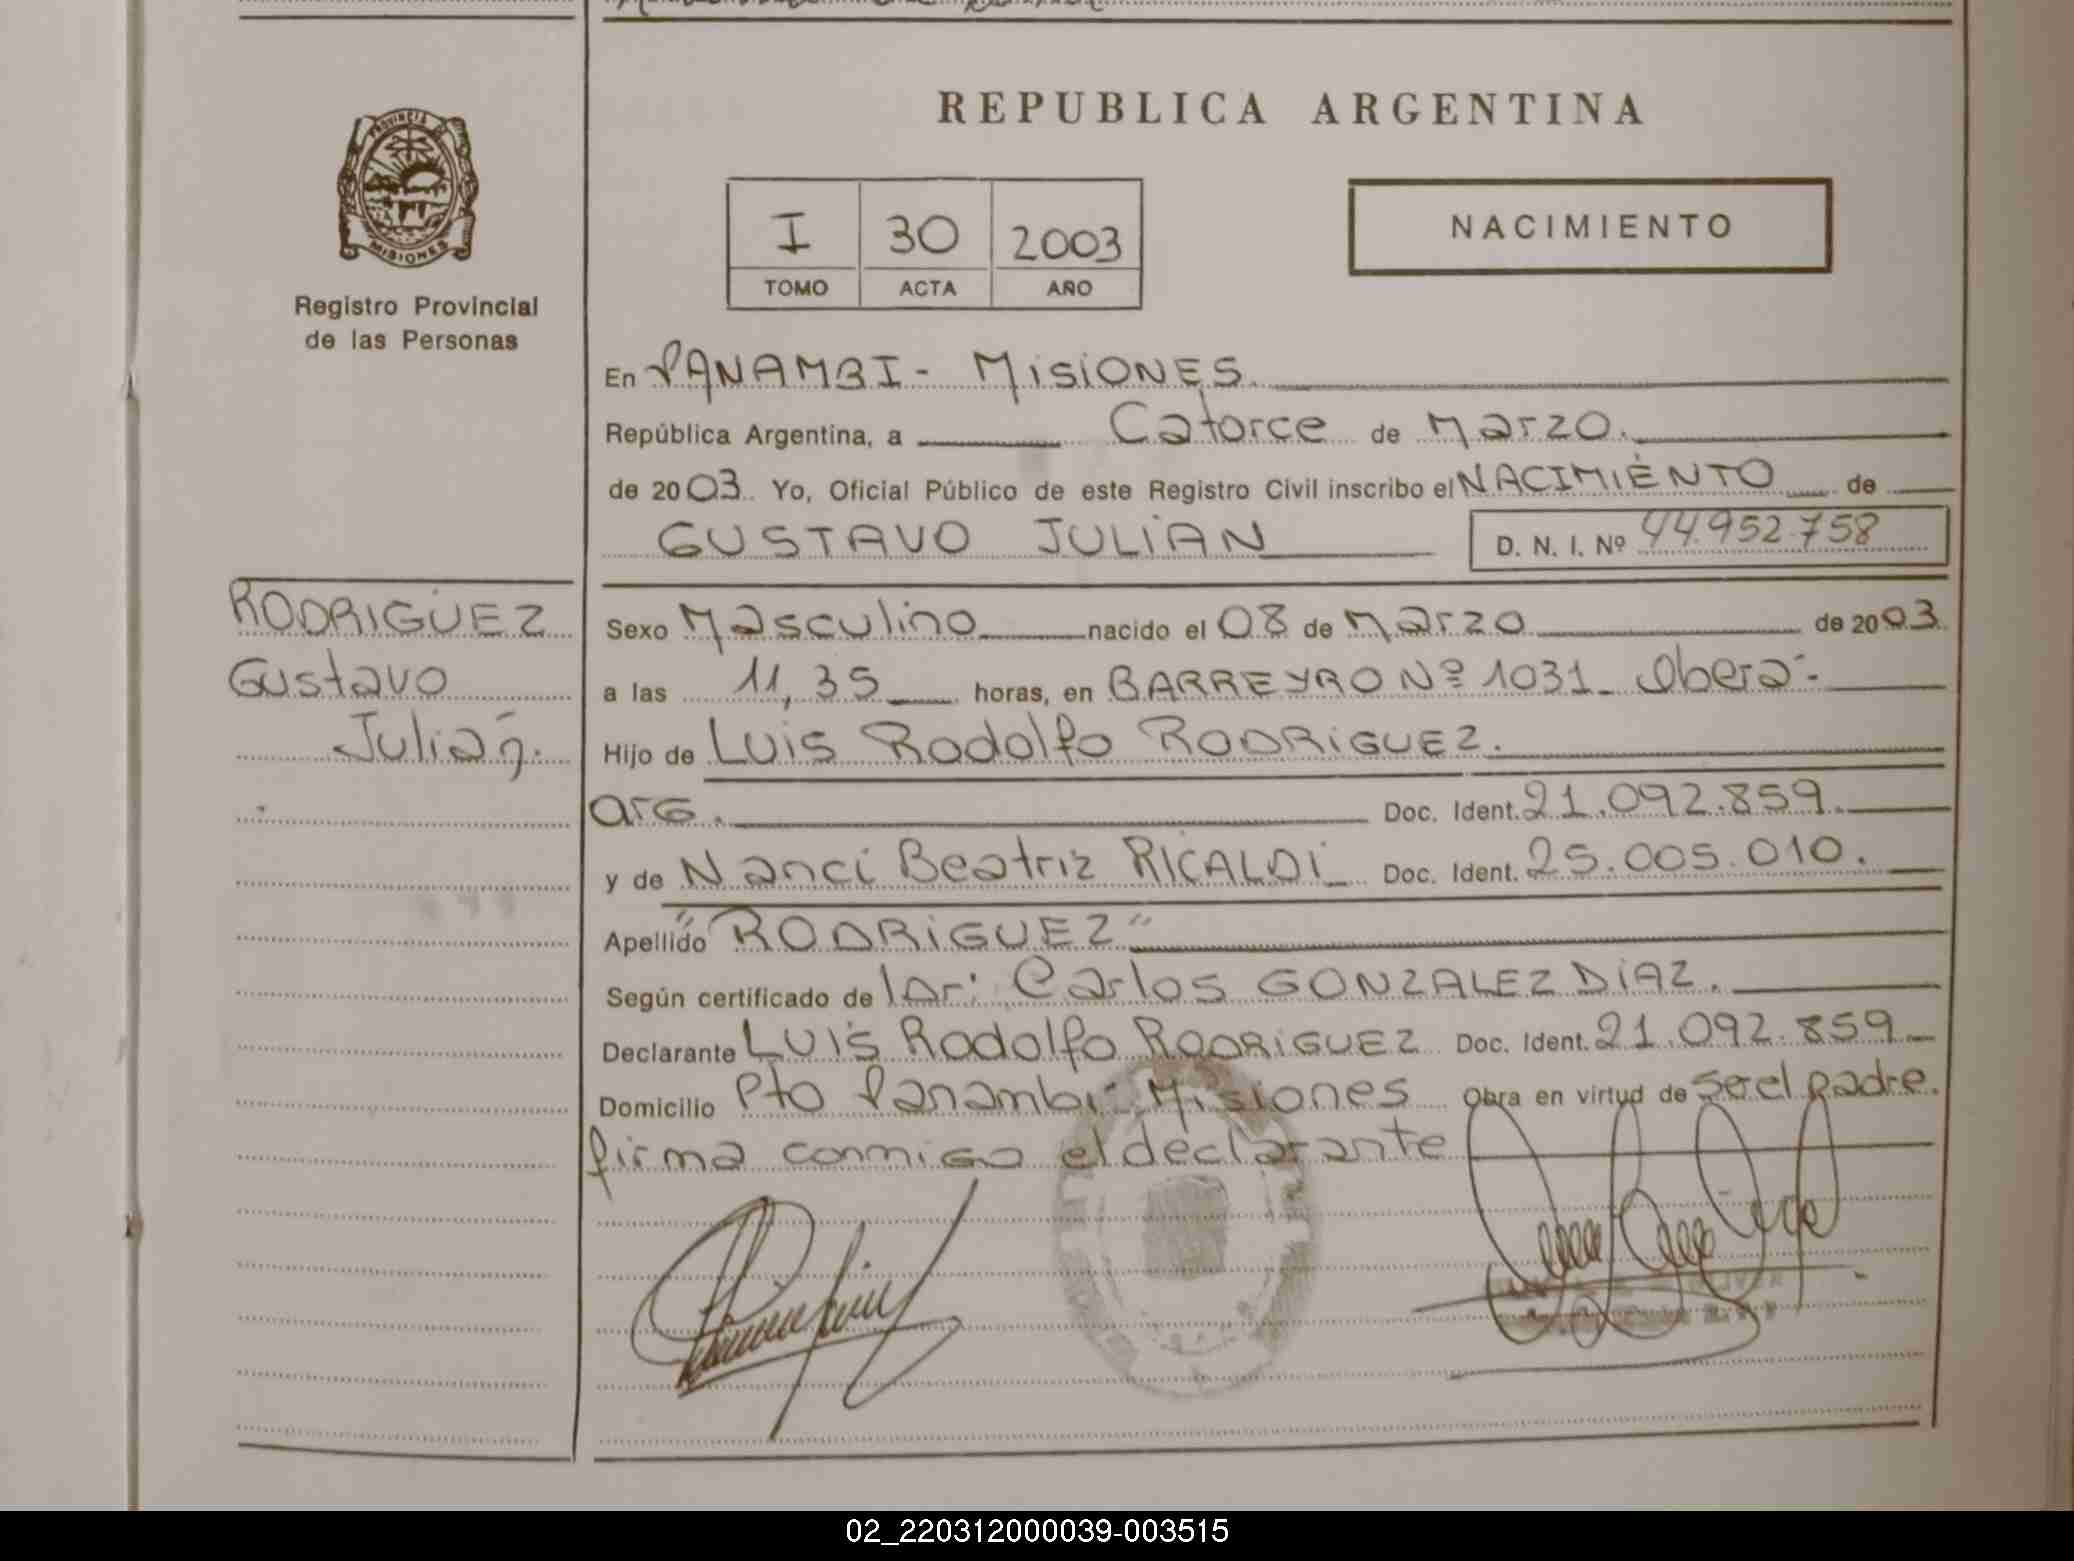 REPUBLICA ARGENTINA
PROVINCIA DE
MISIONES
Registro Provincial
de las Personas
I 30 2003
TOMO ACTA AÑO
NACIMIENTO
En PANAMBI - MISIONES.
República Argentina, a Catorce de Marzo.
de 2003. Yo, Oficial Público de este Registro Civil inscribo el NACIMIENTO de
GUSTAVO JULIAN D. N. I. Nº 44.952.758
RODRIGUEZ
Gustavo
Julián.
Sexo Masculino nacido el 08 de Marzo de 2003.
a las 11,35 horas, en BARREYRO Nº 1031 - Oberá -
Hijo de Luis Rodolfo RODRIGUEZ.
Arg. Doc. Ident. 21.092.859.
y de Nanci Beatriz RICALDI Doc. Ident. 25.005.010.
Apellido "RODRIGUEZ"
Según certificado de Carlos GONZALEZ DIAZ.
Declarante LUIS Rodolfo RODRIGUEZ Doc. Ident. 21.092.859
Domicilio Pto Panambi - Misiones Obra en virtud de ser el padre.
firma conmigo el declarante
02_220312000039-003515